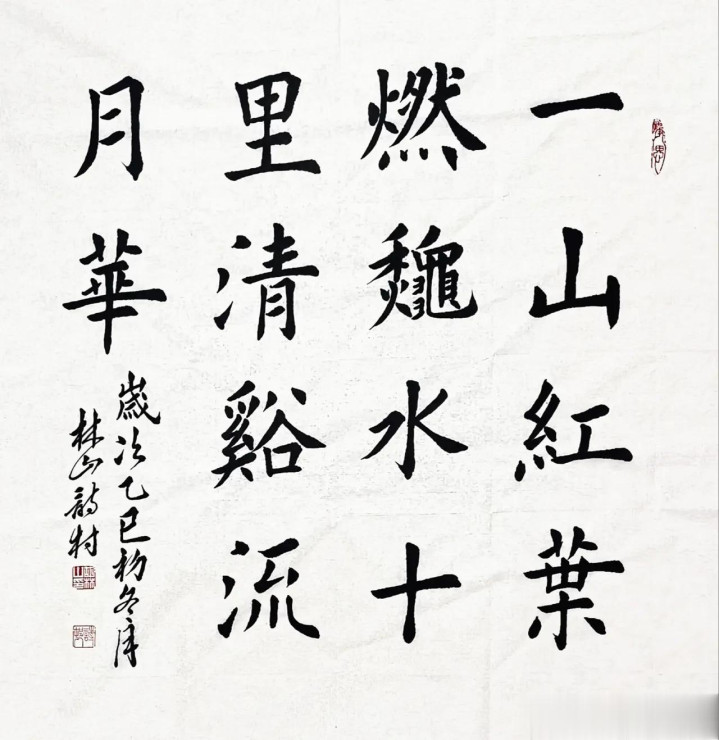 一山紅葉
燃龝水十
里清谿流
月華
歲次乙巳初冬
林山詩村